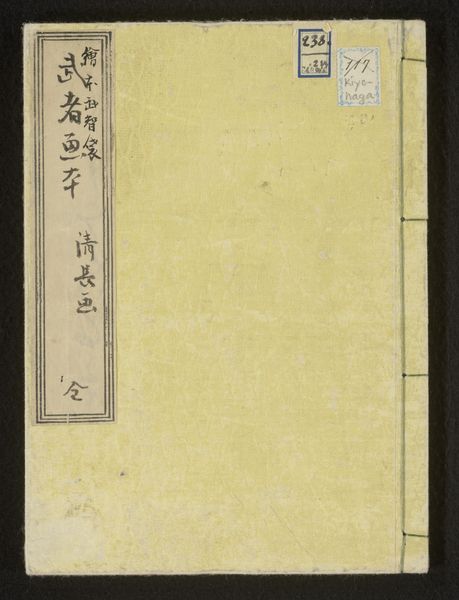 繪本武智袋
武者画本
清長画
全
238.
717
Kiyo-
naga